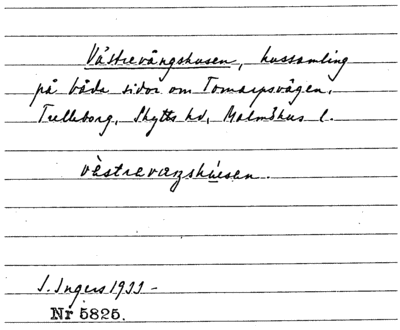 Västrevångshusen, hussamling
på båda sidor om Tomarpsvägen.
Trelleborg, Skytts hd, Malmöhus l.
vèstrevaŋshúsen.
I. Ingers 1933 -
Nr 5825.